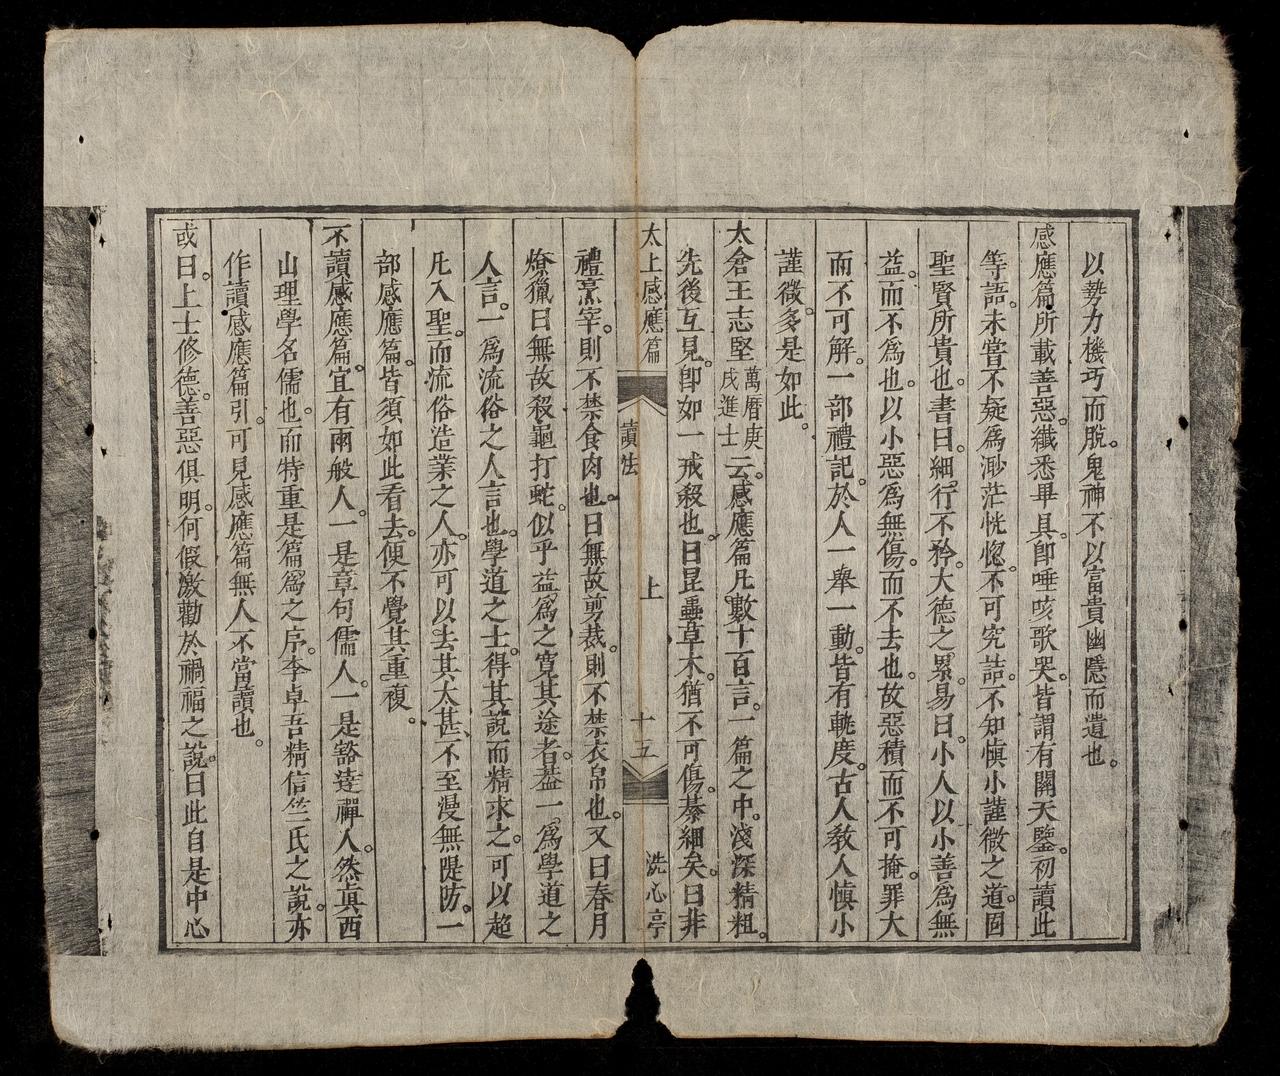 以勢力機巧而脫。鬼神不以富貴幽隱而遺也。
感應篇所載善惡。纖悉畢具。卽唾咳歌哭。皆謂有關天鑒。初讀此
等語。未嘗不疑爲渺茫恍惚。不可究詰。不知愼小謹微之道。固
聖賢所貴也。書曰。細行不矜。大德之累。易曰。小人以小善爲無
益。而不爲也。以小惡爲無傷。而不去也。故惡積而不可掩。罪大
而不可解。一部禮記。於人一舉一動。皆有軌度。古人敎人愼小
謹微。多是如此。
太倉王志堅萬曆庚戌進士云。感應篇凡數十百言。一篇之中。淺深精粗。
先後互見。卽如一戒殺也。曰昆蟲草木。猶不可傷。綦細矣。曰非
太上感應篇 讀法 上 十五 洗心亭
禮烹宰。則不禁食肉也。曰無故剪裁。則不禁衣帛也。又曰春月
燎獵。曰無故殺龜打蛇。似乎益爲之寬其途者。葢一爲學道之
人言。一爲流俗之人言也。學道之士。得其說而精求之。可以超
凡入聖。而流俗造業之人。亦可以去其太甚、不至漫無隄防。一
部感應篇。皆須如此看去。便不覺其重複。
不讀感應篇。宜有兩般人。一是章句儒人。一是豁達禪人。然眞西
山理學名儒也。而特重是篇。爲之序。李卓吾精信竺氏之說。亦
作讀感應篇引。可見感應篇無人不當讀也。
或曰。上士修德。善惡俱明。何假激勸於禍福之說。曰此自是中心